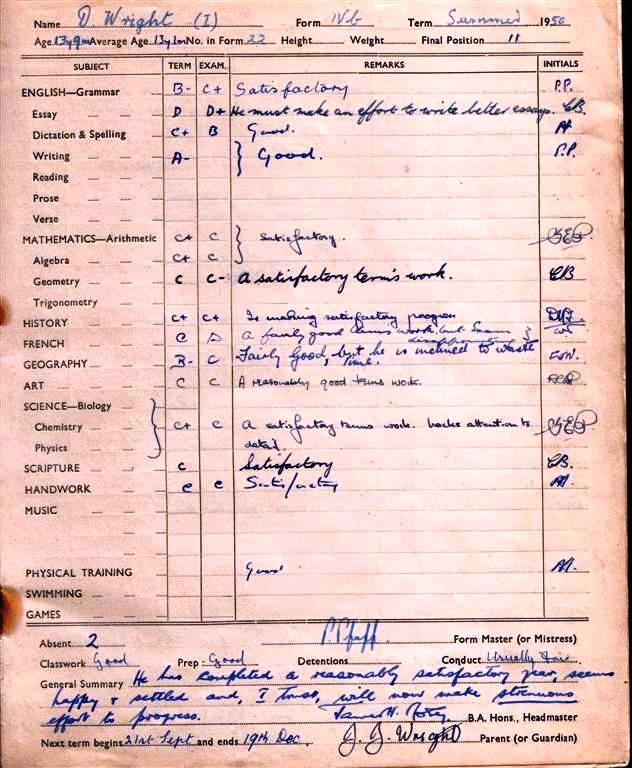 Name D. Wright (I) Form IVb Term Summer 1950
Age 13y9m Average Age 13y1m No. in Form 22 Height Weight Final Position 11
SUBJECT TERM EXAM. REMARKS INITIALS
ENGLISH—Grammar B- C+ Satisfactory P.P.
Essay D D+ He must make an effort to write better essays. CB.
Dictation & Spelling C+ B Good.
Writing A- } Good. P.P.
Reading
Prose
Verse
MATHEMATICS—Arithmetic C+ C } Satisfactory.
Algebra C+ C
Geometry C C- A satisfactory term's work. CB
Trigonometry
HISTORY C+ C+ Is making satisfactory progress
FRENCH C D A fairly good terms work but Exam
disappointing
GEOGRAPHY B- C Fairly Good, but he is inclined to waste
time.
ART C C A reasonably good terms work.
SCIENCE—Biology
Chemistry C+ C A satisfactory terms work. Lacks attention to
Physics detail
SCRIPTURE C Satisfactory CB.
HANDWORK C C Satisfactory
MUSIC
PHYSICAL TRAINING Good
SWIMMING
GAMES
Absent 2 P Pfaff Form Master (or Mistress)
Classwork Good Prep: Good Detentions Conduct Usually Fair
General Summary He has completed a reasonably satisfactory year, seems
happy & settled and, I trust, will now make strenuous
effort to progress. B.A. Hons., Headmaster
Next term begins 21st Sept and ends 19th Dec. J. J. Wright Parent (or Guardian)